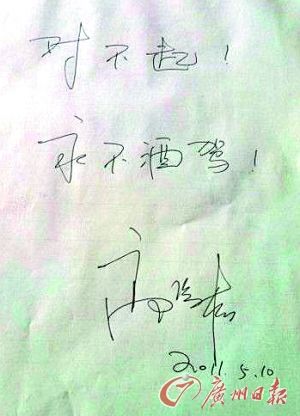 对不起！
永不酒驾！
高晓松
2011.5.10
广州日报